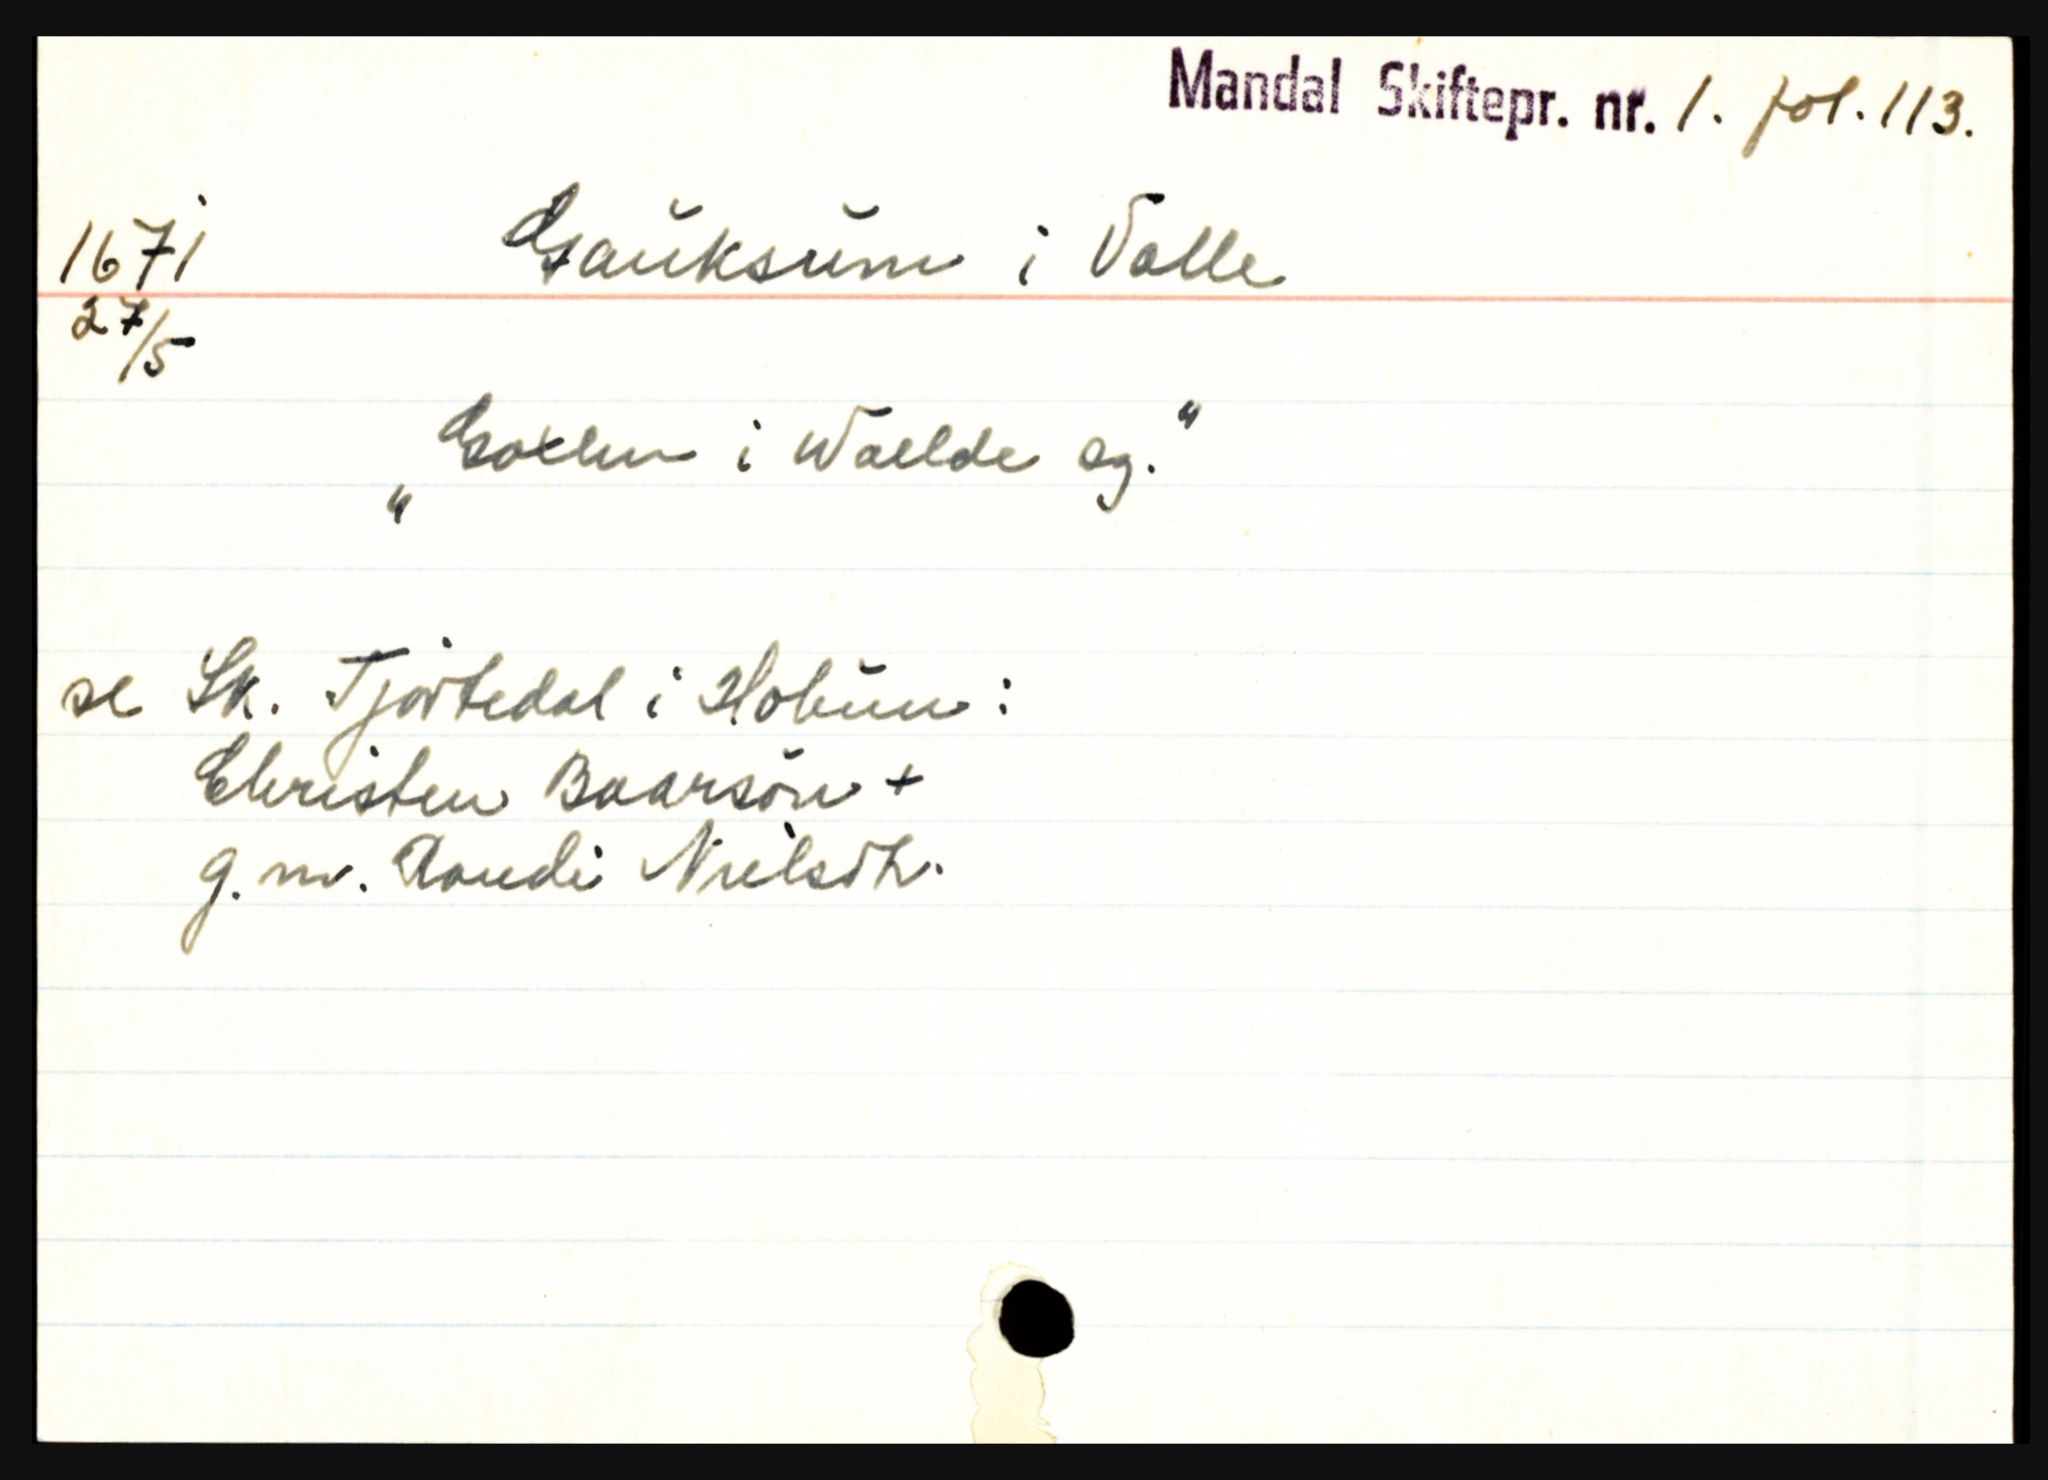 Mandal Skiftepr. nr. 1. fol. 113.
1671 Gauksum i Valle
27/5
„Goxem i Waelde sg.“
se Sk. Tjortedal i Holum:
Christen Baarsön +
g. m. Randi Nielsdt.